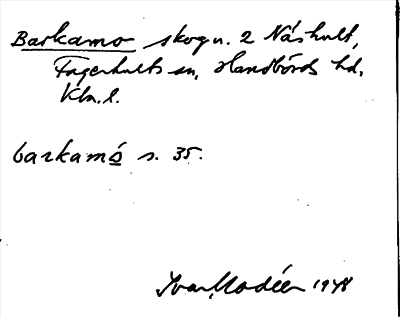 Barkamo skogn. 2 Näshult,
Fagerhults sn, Handbörds hd,
Klm. l.
barkamo s. 35.
Ivar Modéer 1948